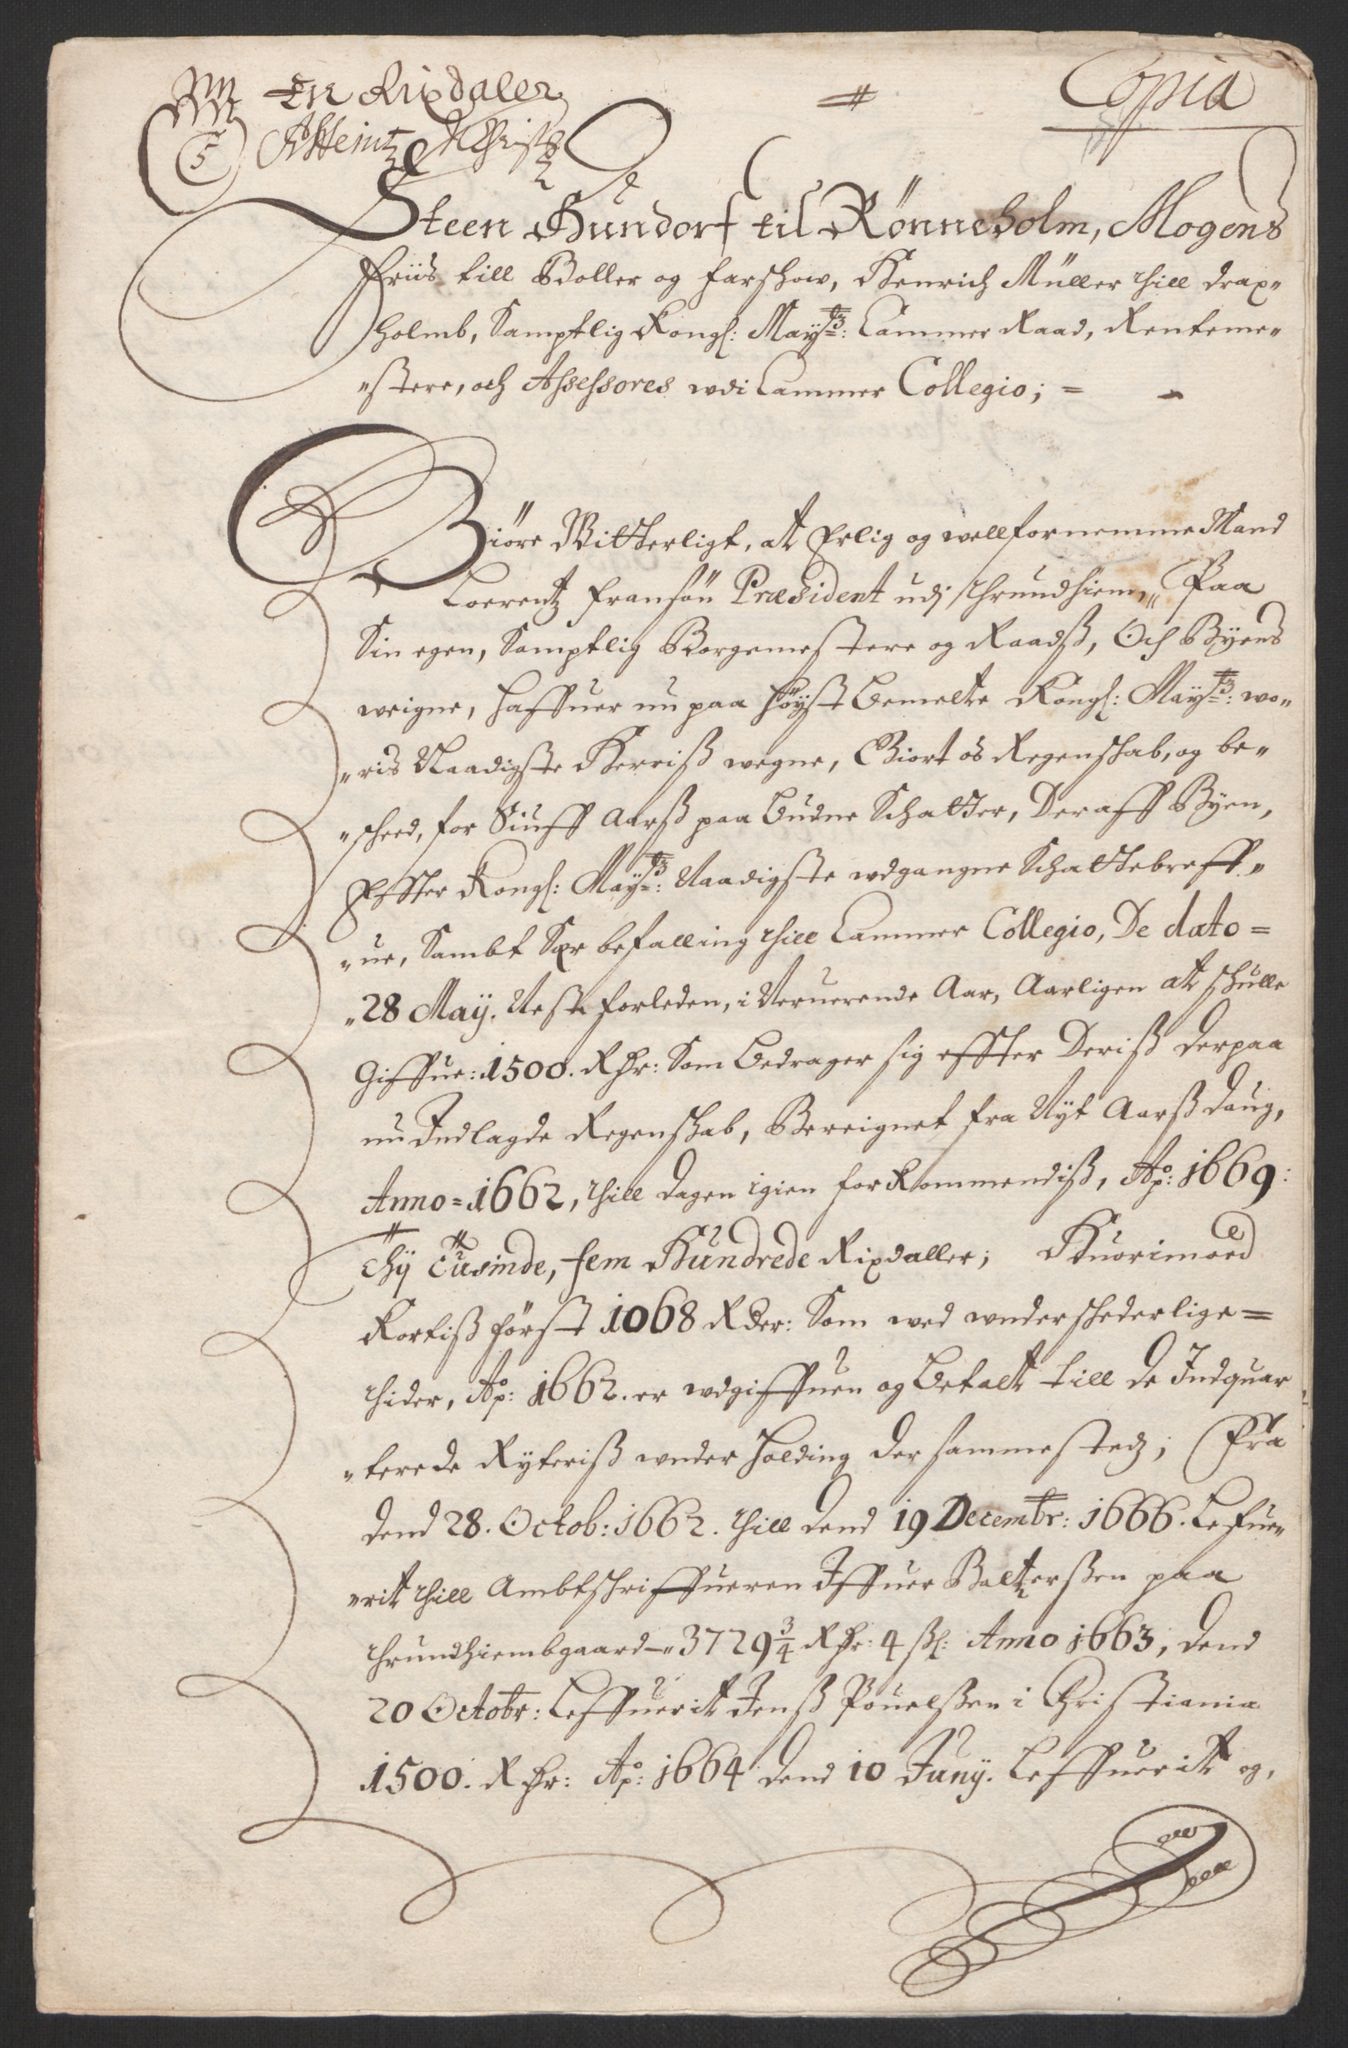 En Rixdaler
Copia
5
Steen Hundorf til Rönneholm, Mogens
Friis till Boller og Farschow, Henrich Müller thill Drax„
holmb, Samptlig Kongl: Mayts: Cammer Raad, Renteme„
„stere, och Assessores udi Cammer Collegio; =
Giöre Witterligt, at Erlig og wellfornemme Mand
Loerentz Fransön Præsident udj Thrundhiem, Paa
Sin egen, Samptlig Borgemestere og Raadß, Och Byens
weigne, haffuer nu paa höyst bemelte Kongl: Mayts: wo„
„ris Naadigste Herriß wegne, Giort os Regenschab, og be„
„scheed, for Siuff Aarß paa budne Schatter, Deraff Byen,
Effter Kongl: Mayts: Naadigste udgangne Schattebreff„
„ue, Sambt Sær befalling thill Cammer Collegio, De dato =
„28 May. Nest forleden, i Neruerende Aar, Aarligen at schulle
Giffue: 1500. Rdr: Som bedrager sig effter Deriß derpaa
nu Indlagde Regenschab, Bereignet fra Nyt Aarß daug,
Anno = 1662, thill dagen igien forkommendiß, Ao: 1669:
Thj Tusinde, fem Hundrede Rixdaller; Huorimoed
Kortiß först 1068 Rder: Som wed underschedelige =
thider, Ao: 1662. er udgiffuen og betalt till de Indquar
„terede Ryteriß underholding der sammestedz; Fra
dend 28. Octob: 1662. thill dend 19 Decembr: 1666. Lefue„
„rit thill Ambtschriffueren Iffuer Baltzerßen paa
Thrundhiembgaard „ 3729 3/4 Rdr: 4 ßl: Anno 1663, dend
20 Octobr: Leffuerit Jenß Pouelßen i Christiania
1500. Rdr: Ao: 1664 dend 10 Juny. Leffuerit og,